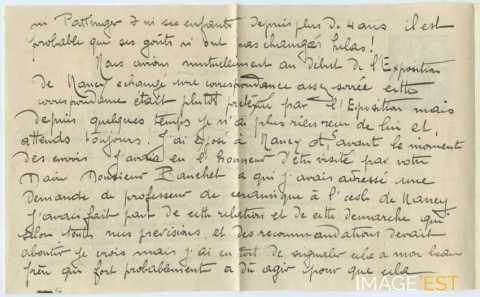 ni Pattinger ni ses enfants depuis plus de 4 ans il est
probable qui ses goûts ni ont pas changés helas!
Nous avions mutuellement au début de l'Exposition
de Nancy echangé une correspondance assez serrée cette
correspondance était plutôt par l'Exposition mais
depuis quelques temps je n'ai plus rien reçu de lui et,
attends toujours! J'ai exposé à Nancy et, avant le moment
des envois j'avais eu l'honneur d'être visité par votre
ami Monsieur Banchet à qui j'avais adressé une
demande de professeur de ceramique à l'ecole de Nancy
J'avais fait part de cette relation et de cette demarche qui
selon toutes mes previsions et des recommandations devait
aboutir je crois mais j'ai eu tort de signaler cela a mon beau
frère qui fort probablement a dû agir pour que cela
IMAGE'EST